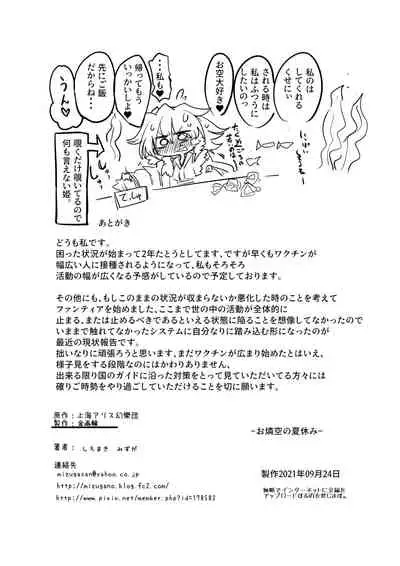 私のは
してくれる
くせにぃ
される時は
私はふつうに
したいのっ
お空大好き♥
･･･私も♥
帰ってもう
いっかいしよ♥
先にご飯
だからね･･
うん♥
覗くだけ覗いてるので
何も言えない姫。
あとがき
どうも私です。
困った状況が始まって2年たとうとしてます、ですが早くもワクチンが
幅広い人に接種されるようになって、私もそろそろ
活動の幅が広くなる予感がしているので予定しております。
その他にも、もしこのままの状況が収まらないか悪化した時のことを考えて
ファンティアを始めました、ここまで世の中の活動が全体的に
止まる、または止めるべきであるといえる状態に陥ることを想像してなかったので
いままで触れてなかったシステムに自分なりに踏み込む形になったのが
最近の現状報告です。
拙いなりに頑張ろうと思います、まだワクチンが広まり始めたとはいえ、
様子見をする段階なのにはかわりありません、
出来る限り国のガイドに沿った対策をとって見ていただいてる方々には
確りご時勢をやり過ごしていただけることを切に願います。
原作：上海アリス幻樂団
製作：
著者：しちまき みずが
連絡先
mizugasan@yahoo.co.jp
http://mizugano.blog.fc2.com/
http://www.pixiv.net/member.php?id=178583
-お燐空の夏休み-
製作2021年09月24日
無断でインターネットに全編を
アップロードするのを禁じます。